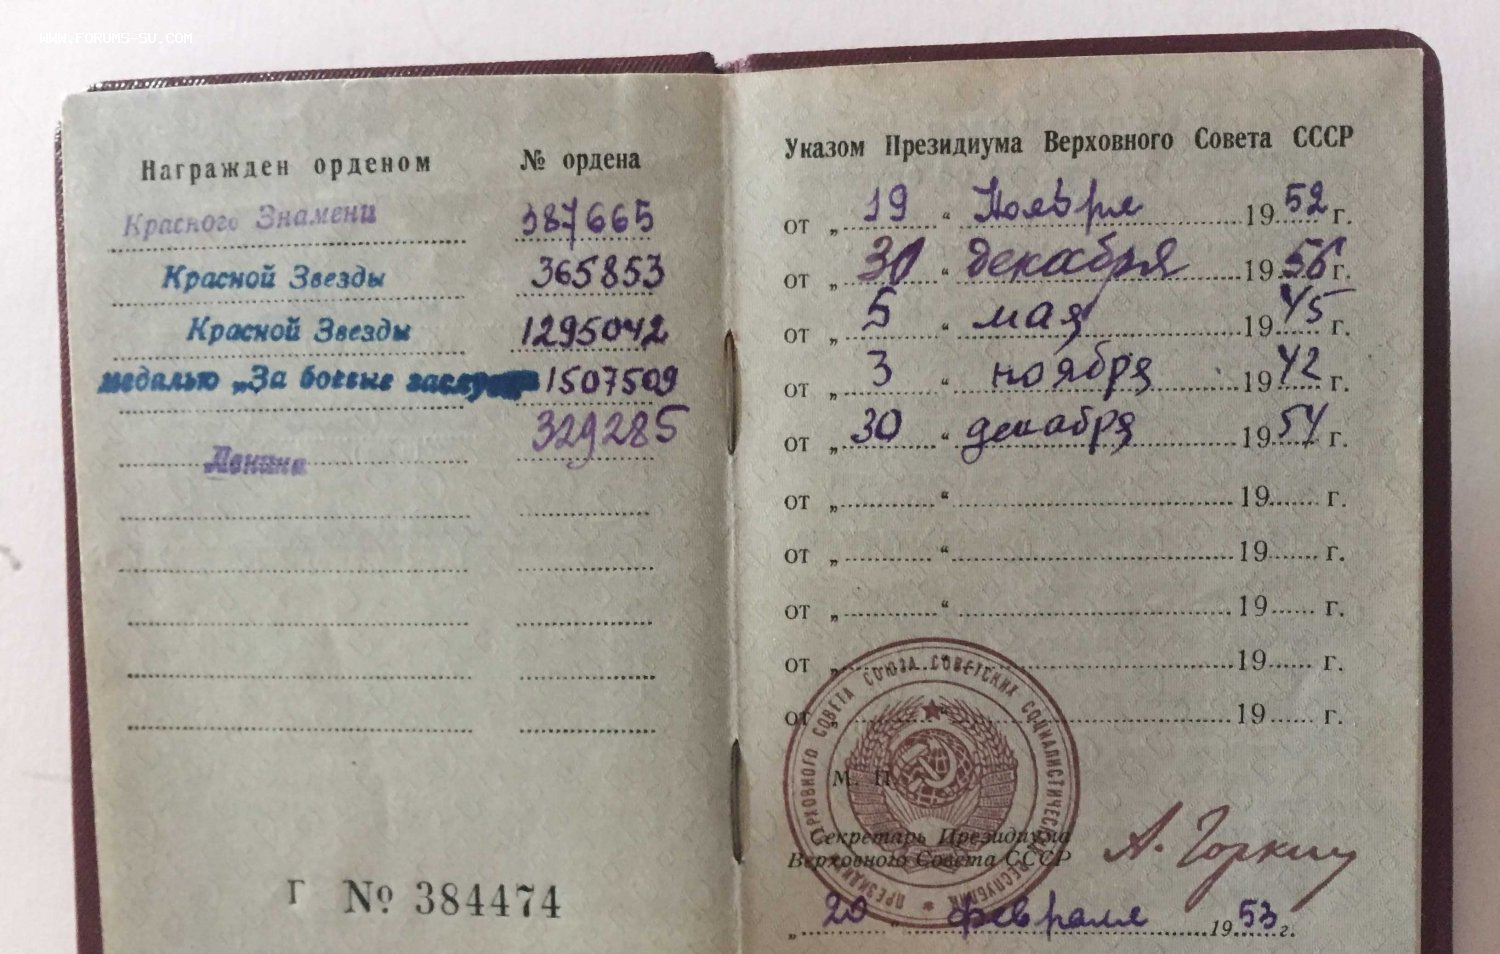 WWW.FORUMS-SU.COM
Награжден орденом № ордена
Красного Знамени 387665
Красной Звезды 365853
Красной Звезды 1295042
медалью „За боевые заслуги 1507509
Ленина 329285
Г № 384474
Указом Президиума Верховного Совета СССР
от „ 19 “ Ноября 1952 г.
от „ 30 “ декабря 1956 г.
от „ 5 “ мая 1945 г.
от „ 3 “ ноября 1942 г.
от „ 30 “ декабря 1954 г.
от „ “ 19 г.
от „ “ 19 г.
от „ “ 19 г.
от „ “ 19 г.
от „ “ 19 г.
М. П.
ПРЕЗИДИУМ ВЕРХОВНОГО СОВЕТА СОЮЗА СОВЕТСКИХ СОЦИАЛИСТИЧЕСКИХ РЕСПУБЛИК
Секретарь Президиума
Верховного Совета СССР А. Горкин
„ 20 “ февраля 1953 г.